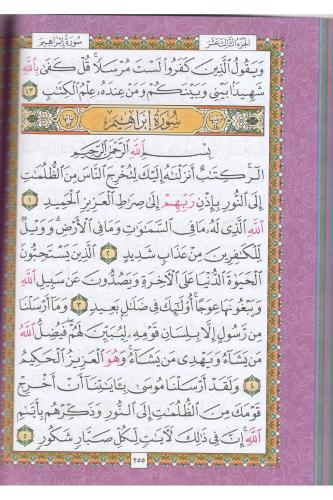 الجزء الثالث عشر
سورة إبراهيم
وَيَقُولُ ٱلَّذِينَ كَفَرُوا۟ لَسْتَ مُرْسَلًا ۚ قُلْ كَفَىٰ بِٱللَّهِ
شَهِيدًۢا بَيْنِى وَبَيْنَكُمْ وَمَنْ عِندَهُۥ عِلْمُ ٱلْكِتَـٰبِ ٤٣
سورة إبراهيم
بِسْمِ ٱللَّهِ ٱلرَّحْمَـٰنِ ٱلرَّحِيمِ
الٓر ۚ كِتَـٰبٌ أَنزَلْنَـٰهُ إِلَيْكَ لِتُخْرِجَ ٱلنَّاسَ مِنَ ٱلظُّلُمَـٰتِ
إِلَى ٱلنُّورِ بِإِذْنِ رَبِّهِمْ إِلَىٰ صِرَٰطِ ٱلْعَزِيزِ ٱلْحَمِيدِ ١
ٱللَّهِ ٱلَّذِى لَهُۥ مَا فِى ٱلسَّمَـٰوَٰتِ وَمَا فِى ٱلْأَرْضِ ۗ وَوَيْلٌ
لِّلْكَـٰفِرِينَ مِنْ عَذَابٍ شَدِيدٍ ٢ ٱلَّذِينَ يَسْتَحِبُّونَ
ٱلْحَيَوٰةَ ٱلدُّنْيَا عَلَى ٱلْـَٔاخِرَةِ وَيَصُدُّونَ عَن سَبِيلِ ٱللَّهِ
وَيَبْغُونَهَا عِوَجًا ۚ أُو۟لَـٰٓئِكَ فِى ضَلَـٰلٍۭ بَعِيدٍ ٣ وَمَآ أَرْسَلْنَا
مِن رَّسُولٍ إِلَّا بِلِسَانِ قَوْمِهِۦ لِيُبَيِّنَ لَهُمْ ۖ فَيُضِلُّ ٱللَّهُ
مَن يَشَآءُ وَيَهْدِى مَن يَشَآءُ ۚ وَهُوَ ٱلْعَزِيزُ ٱلْحَكِيمُ
٤ وَلَقَدْ أَرْسَلْنَا مُوسَىٰ بِـَٔايَـٰتِنَآ أَنْ أَخْرِجْ
قَوْمَكَ مِنَ ٱلظُّلُمَـٰتِ إِلَى ٱلنُّورِ وَذَكِّرْهُم بِأَيَّىٰمِ
ٱللَّهِ ۚ إِنَّ فِى ذَٰلِكَ لَـَٔايَـٰتٍ لِّكُلِّ صَبَّارٍ شَكُورٍ ٥
٢٥٥